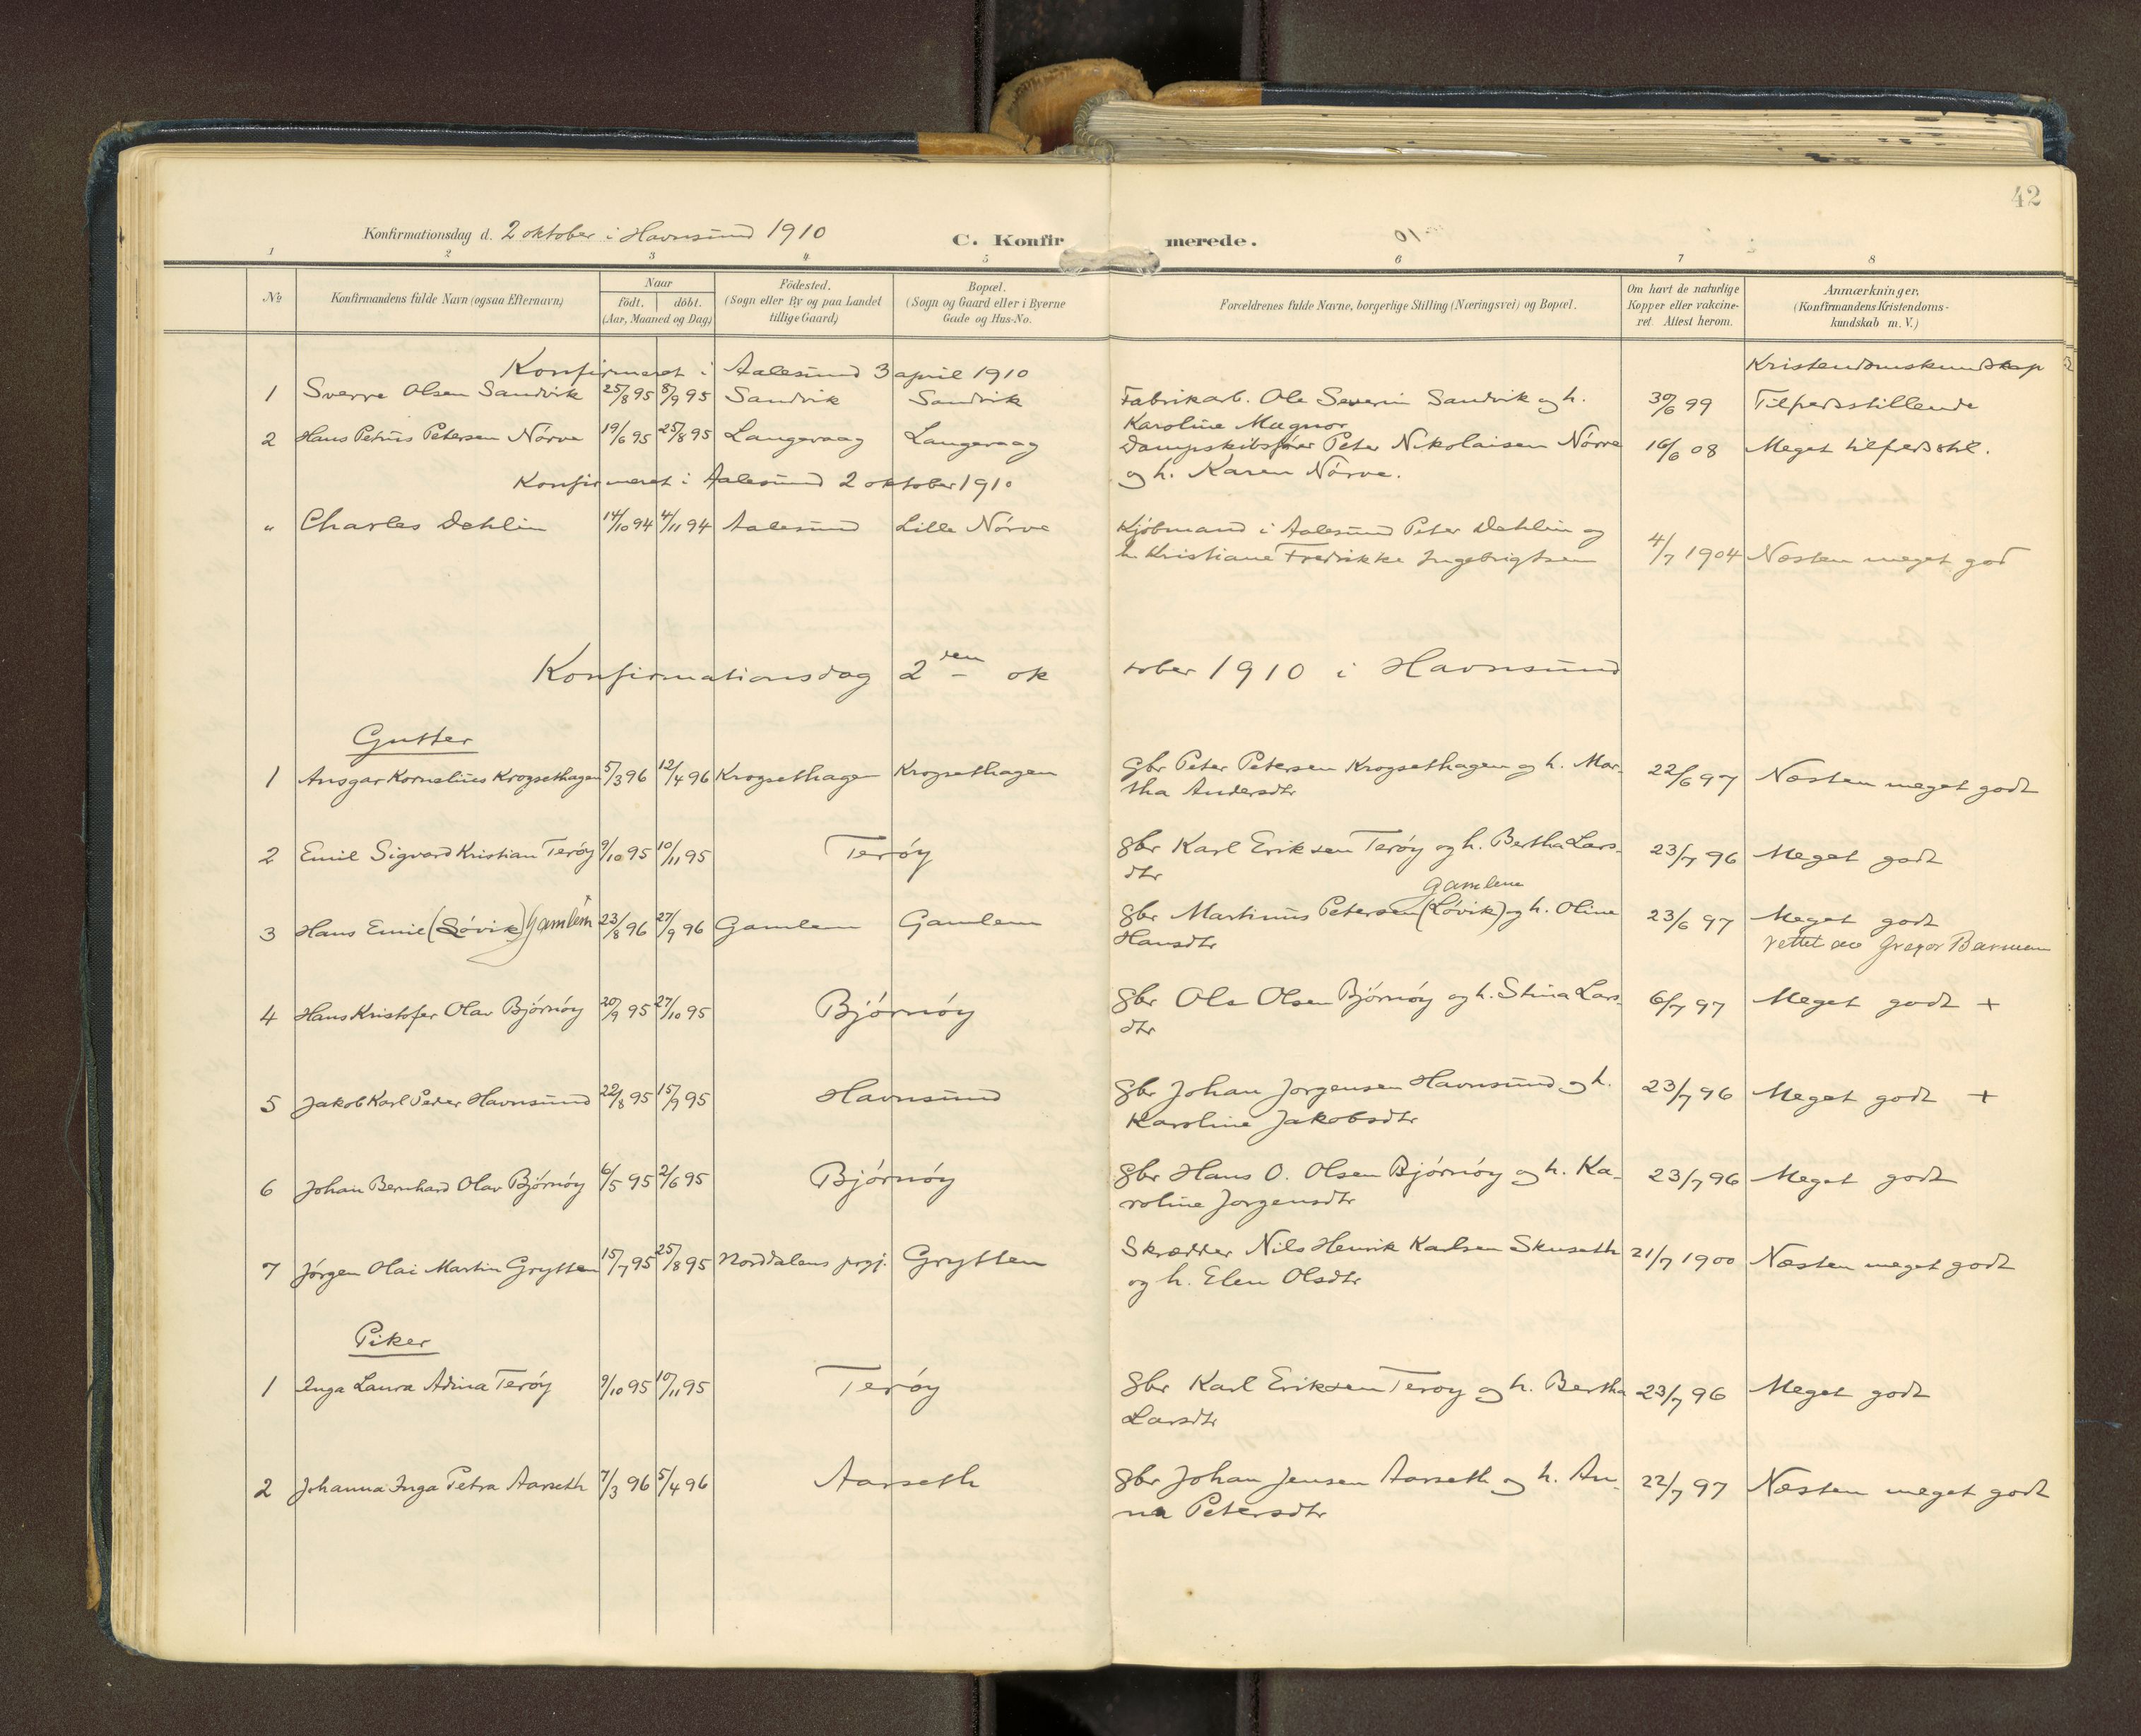 42
Konfirmationsdag d. 2 oktober i Havnsund 1910
C. Konfirmerede.
1 2 3 4 5 6 7 8
No
Konfirmandens fulde Navn (ogsaa Efternavn)
Naar
født. døbt.
(Aar, Maaned og Dag)
Fødested.
(Sogn eller By og paa Landet
tillige Gaard)
Bopæl.
(Sogn og Gaard eller i Byerne
Gade og Hus-No.
Forældrenes fulde Navne, borgerlige Stilling (Næringsvei) og Bopæl.
Om havt de naturlige
Kopper eller vakcine-
ret. Attest herom.
Anmærkninger,
(Konfirmandens Kristendoms-
kundskab m. V.)
Konfirmeret i Aalesund 3 april 1910
Kristendomskundskap
1 Sverre Olsen Sandvik 25/8 95 8/9 95 Sandvik Sandvik Fabrikarb. Ole Severin Sandvik og h. 30/6 99 Tilfredsstillende
Karoline Magnor
2 Hans Petrus Petersen Nørve 19/6 95 25/8 95 Langevaag Langevaag Dampskibsfører Peter Nikolaisen Nørve 16/6 08 Meget tilfredsstil.
og h. Karen Nørve.
Konfirmeret i Aalesund 2 oktober 1910
" Charles Dehlin 14/10 94 4/11 94 Aalesund Lille Nørve Kjøbmand i Aalesund Peter Dehlin og
h. Kristiane Fredrikke Ingebrigtsen 4/7 1904 Næsten meget god
Konfirmationsdag 2den oktober 1910 i Havnsund
Gutter
1 Ansgar Kornelius Krogsethagen 5/3 96 12/4 96 Krogsethagen Krogsethagen Gbr Peter Petersen Krogsethagen og h. Mar- 22/6 97 Næsten meget godt
tha Andersdtr
2 Emil Sigvard Kristian Terøy 9/10 95 10/11 95 Terøy Gbr Karl Eriksen Terøy og h. Bertha Lars- 23/7 96 Meget godt
dtr
Gamlem
3 Hans Emil (Løvik) Gamlem 23/8 96 27/9 96 Gamlem Gamlem Gbr Martinus Petersen (Løvik) og h. Oline 23/6 97 Meget godt
Hansdtr rettet av Gregor Barmen
4 Hans Kristofer Olav Bjørnøy 20/9 95 27/10 95 Bjørnøy Gbr Ole Olsen Bjørnøy og h. Stina Lars- 6/7 97 Meget godt +
dtr
5 Jakob Karl Peder Havnsund 22/8 95 15/9 95 Havnsund Gbr Johan Jørgensen Havnsund og h. 23/7 96 Meget godt +
Karoline Jakobsdtr
6 Johan Bernhard Olav Bjørnøy 6/5 95 2/6 95 Bjørnøy Gbr Hans O. Olsen Bjørnøy og h. Ka- 23/7 96 Meget godt
roline Jørgensdtr
7 Jørgen Olai Martin Grytten 15/7 95 25/8 95 Norddalens prgj. Grytten Skrædder Nils Henrik Karlsen Skuseth 21/7 1900 Næsten meget godt
og h. Elen Olsdtr
Piker
1 Inga Laura Adina Terøy 9/10 95 10/11 95 Terøy Gbr Karl Eriksen Terøy og h. Bertha 23/7 96 Meget godt
Larsdtr
2 Johanna Inga Petra Aarseth 7/3 96 5/4 96 Aarseth Gbr Johan Jensen Aarseth og h. An- 22/7 97 Næsten meget godt
na Petersdtr